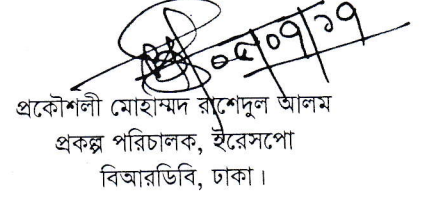 ০৫/০৭/১৭
প্রকৌশলী মোহাম্মদ রাশেদুল আলম
প্রকল্প পরিচালক, ইরেসপো
বিআরডিবি, ঢাকা।